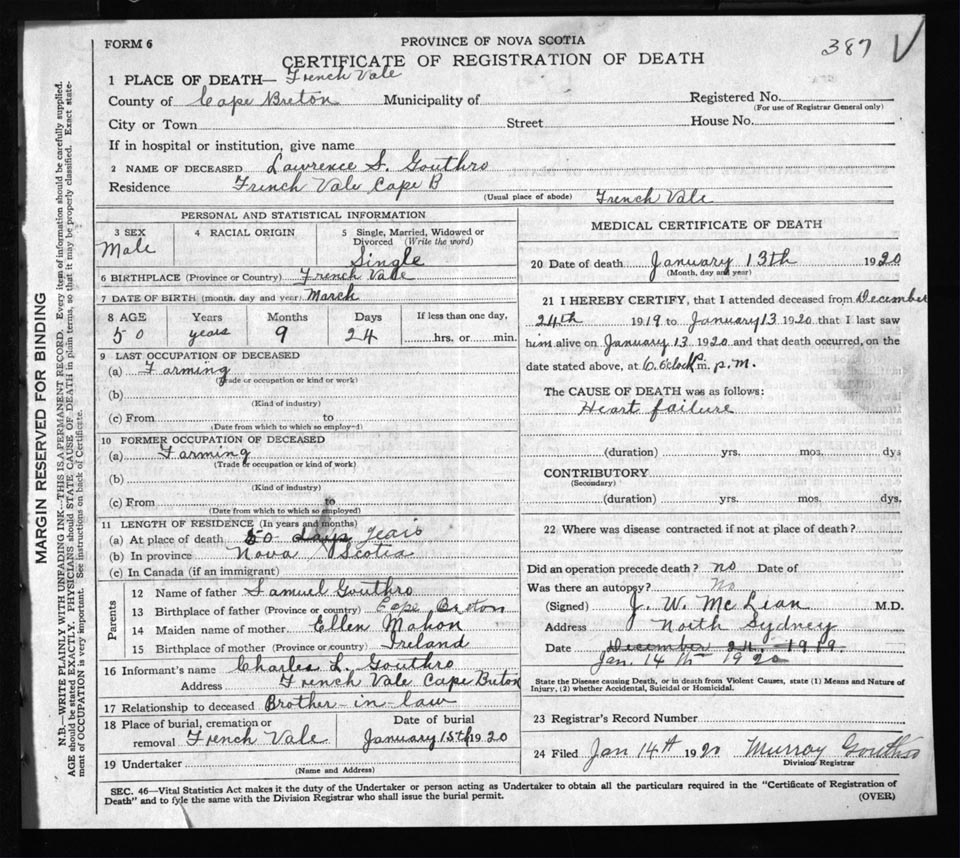 FORM 6
PROVINCE OF NOVA SCOTIA
387 V
CERTIFICATE OF REGISTRATION OF DEATH
1 PLACE OF DEATH— French Vale
County of Cape Breton Municipality of Registered No.
(For use of Registrar General only)
City or Town Street House No.
If in hospital or institution, give name
2 NAME OF DECEASED Lawrence S. Gouthro
Residence French Vale Cape B (Usual place of abode) French Vale
PERSONAL AND STATISTICAL INFORMATION
3 SEX Male
4 RACIAL ORIGIN
5 Single, Married, Widowed or Divorced (Write the word) Single
6 BIRTHPLACE (Province or Country) French Vale
7 DATE OF BIRTH (month, day and year) March
8 AGE Years Months Days If less than one day,
50 years 9 24 hrs. or min.
9 LAST OCCUPATION OF DECEASED
(a) Farming
(Trade or occupation or kind or work)
(b)
(Kind of industry)
(c) From to
(Date from which to which so employed)
10 FORMER OCCUPATION OF DECEASED
(a) Farming
(Trade or occupation or kind of work)
(b)
(Kind of industry)
(c) From to
(Date from which to which so employed)
11 LENGTH OF RESIDENCE (In years and months)
(a) At place of death 50 days years
(b) In province Nova Scotia
(c) In Canada (if an immigrant)
Parents
12 Name of father Samuel Gouthro
13 Birthplace of father (Province or country) Cape Breton
14 Maiden name of mother Ellen Mahon
15 Birthplace of mother (Province or country) Ireland
16 Informant's name Charles L. Gouthro
Address French Vale Cape Breton
17 Relationship to deceased Brother-in-law
18 Place of burial, cremation or removal French Vale
Date of burial January 15th 1920
19 Undertaker
(Name and Address)
MEDICAL CERTIFICATE OF DEATH
20 Date of death January 13th 1920
(Month, day and year)
21 I HEREBY CERTIFY, that I attended deceased from December
24th 1919 to January 13 1920 that I last saw
him alive on January 13 1920 and that death occurred, on the
date stated above, at 6. o'clock m. p.m.
The CAUSE OF DEATH was as follows:
Heart failure
(duration) yrs. mos. dys
CONTRIBUTORY
(Secondary)
(duration) yrs. mos. dys.
22 Where was disease contracted if not at place of death?
Did an operation precede death? no Date of
Was there an autopsy? No
(Signed) J. W. McLean M.D.
Address North Sydney
Date December 24. 1919.
Jan. 14th 1920
State the Disease causing Death, or in death from Violent Causes, state (1) Means and Nature of
Injury, (2) whether Accidental, Suicidal or Homicidal.
23 Registrar's Record Number
24 Filed Jan 14th 1920 Murray Gouthro
Division Registrar
SEC. 46—Vital Statistics Act makes it the duty of the Undertaker or person acting as Undertaker to obtain all the particulars required in the "Certificate of Registration of
Death" and to fyle the same with the Division Registrar who shall issue the burial permit.
(OVER)
MARGIN RESERVED FOR BINDING
N.B.—WRITE PLAINLY WITH UNFADING INK.—THIS IS A PERMANENT RECORD. Every item of information should be carefully supplied.
AGE should be stated EXACTLY. PHYSICIANS should STATE CAUSE OF DEATH in plain terms, so that it may be properly classified. Exact state-
ment of OCCUPATION is very important. See instructions on back of Certificate.